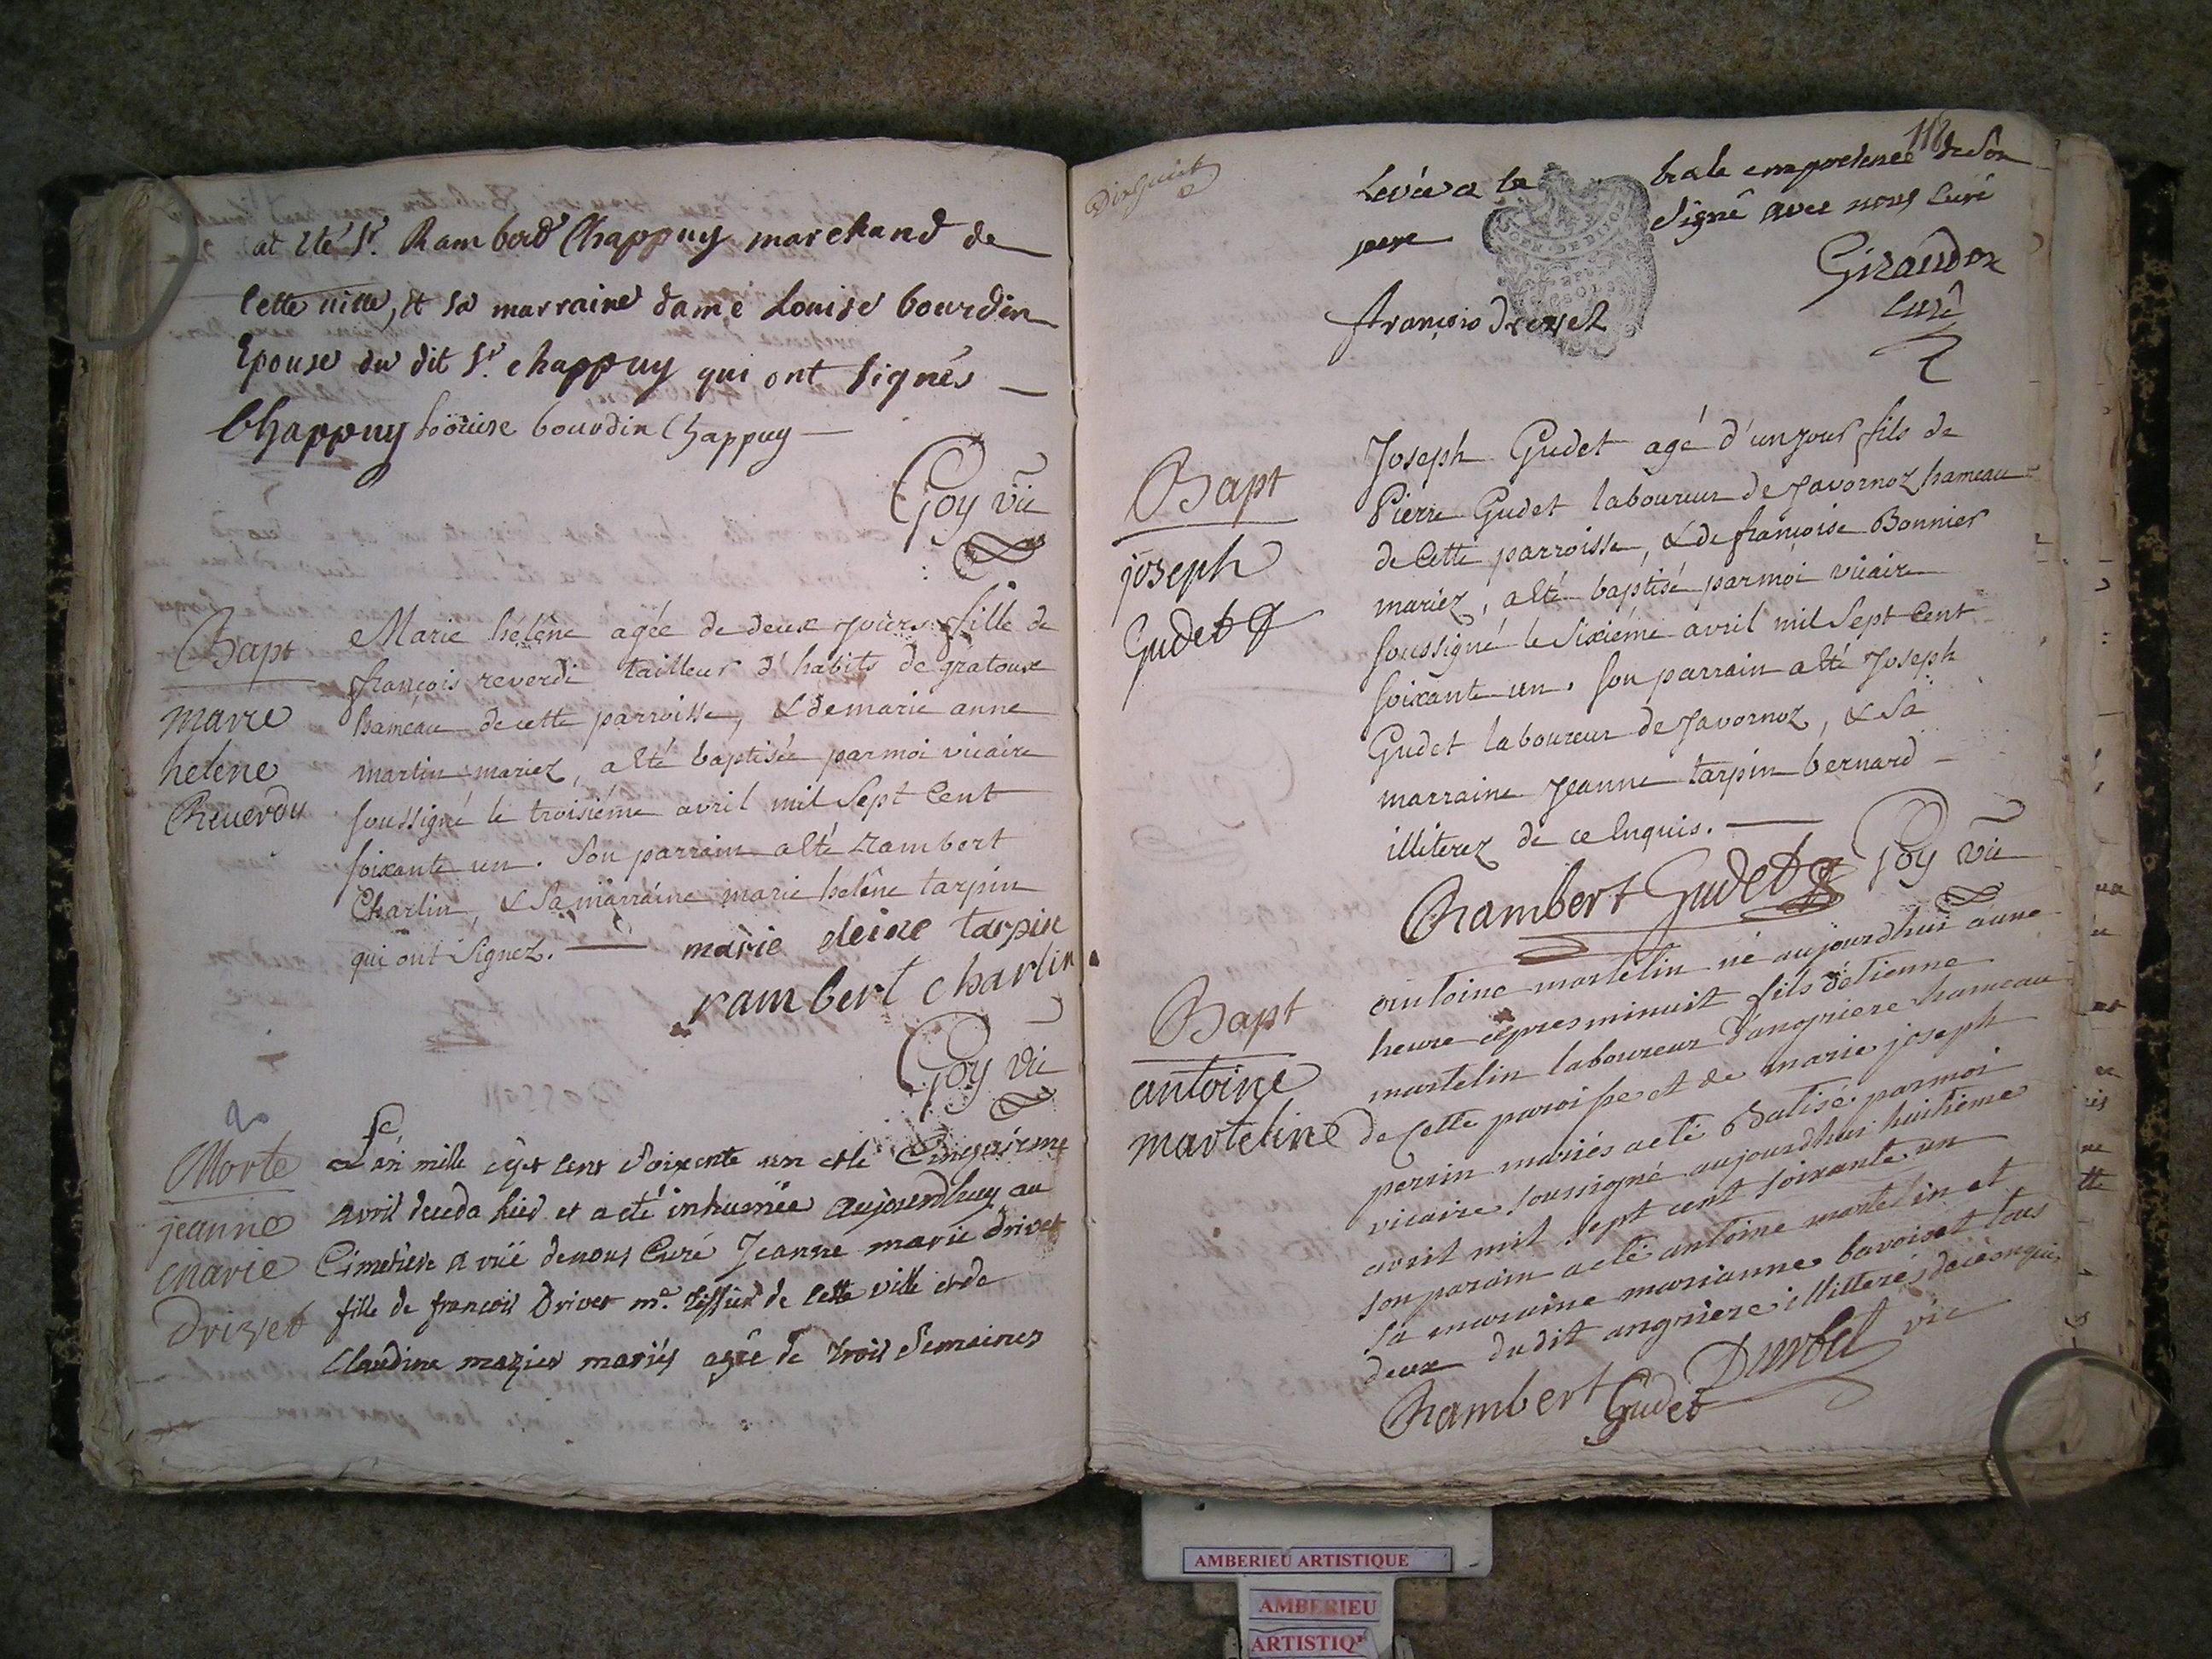 at eté Sr. Rambert Chappuy marchand de
cette ville, et sa marraine dame Louise bourdin
Epouse du dit Sr. chappuy qui ont signés
Chappuy Loüise bourdin Chappuy
Goy vic
Bapt
marie
helene
Reverdy
Marie hélène agée de deux jours fille de
françois reverdi tailleur d'habits de gratoux
hameau de cette parroisse, & de marie anne
martin mariez, a été baptisée par moi vicaire
soussigné le troisiéme avril mil sept cent
soixante un. Son parrain a été rambert
Charlin, & sa marraine marie heléne tarpin
qui ont signez. marie eleine tarpin
rambert charlin
Goy vic
Morte
jeanne
marie
Drivet
L'an mille sept cent soixente un et le Cinquieme
avril deceda hier et a eté inhumée aujourdhuy au
Cimetiere a vüe de nous Curé Jeanne marie drivet
fille de francois Drivet md. tissier de cette ville et de
Claudine mazier mariés agée de trois semaines
Dixhuit
118
Levée a la brale en presence de son
pere signé avec nous curé
françois drivet
Giraudon
curé
Bapt
joseph
Gudet
Joseph Gudet agé d'un jour fils de
Pierre Gudet laboureur de Javornoz hameau
de cette parroisse, & de françoise Bonnier
mariez, a été baptisé par moi vicaire
soussigné le sixiéme avril mil sept cent
soixante un. son parrain a été Joseph
Gudet laboureur de Javornoz, & sa
marraine Jeanne tarpin bernard
illiterez de ce enquis.
Rambert Gudet Goy vic
Bapt
antoine
marteline
antoine martelin né aujourdhui a une
heure apres minuit fils détienne
martelin laboureur d'angriere hameau
de cette paroisse et de marie joseph
perrin mariés a eté batisé par moi
vicaire soussigné aujourdhui huitième
avril mil sept cent soixante un
son parain a eté antoine martelin et
sa maraine marianne bavoiset tous
deux dudit angriere illitterés de ce enquis
Rambert Gudet vic
AMBERIEU ARTISTIQUE
AMBERIEU
ARTISTIQ